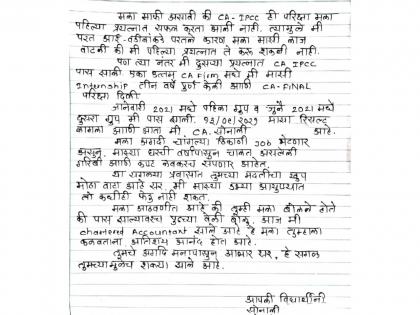 मला माफी असावी की CA-IPCC ही परिक्षा मला
पहिल्या प्रयत्नात सफल करता आली नाही. त्यामुळे मी
परत आई-वडीलांकडे परतले कारण मला मासी लाज
वाटली की मी पहिल्या प्रयत्नात ते करु शकली नाही.
पण त्या नंतर मी दुसऱ्या प्रयत्नात CA IPCC
पास झाली. एका उत्तम CA Firm मध्ये मी मासी
Internship तीन वर्षे पुर्ण केली आणि CA-FINAL
परिक्षा दिली
जानेवारी 2021 मध्ये पहिला ग्रुप व जुलै 2021 मध्ये
दुसरा ग्रुप मी पास झाली. १३/०९/२०२१ माझा रिसल्ट
लागला आणि आता मी. CA. सोनाली आहे.
मला अगदी चांगल्या ठिकाणी Job भेटणार
असून. माझ्या घरची वर्षांपासून चालत असलेली
गरिबी आणि कष्ट लवकरच संपणार आहेत.
या सगळ्या प्रवासात तुमच्या मदतीचा खुप
मोठा वाटा आहे सर. मी माझ्या उभ्या आयुष्यात
तो कधीही फेडू नाही शकत.
मला आठवणीत आहे की तुम्ही मला बोलले होते
की पास झाल्यावरच पुढच्या वेळी बोलू. आज मी
chartered Accountant झाले आहे. हे मला तुम्हाला
कळवताना अतिशय आनंद होत आहे.
तुमचे अगदि मनापासून आभार सर, हे सगळं
तुमच्यामुळेच शक्य झाले आहे.
आपली विद्यार्थीनी
सोनाली